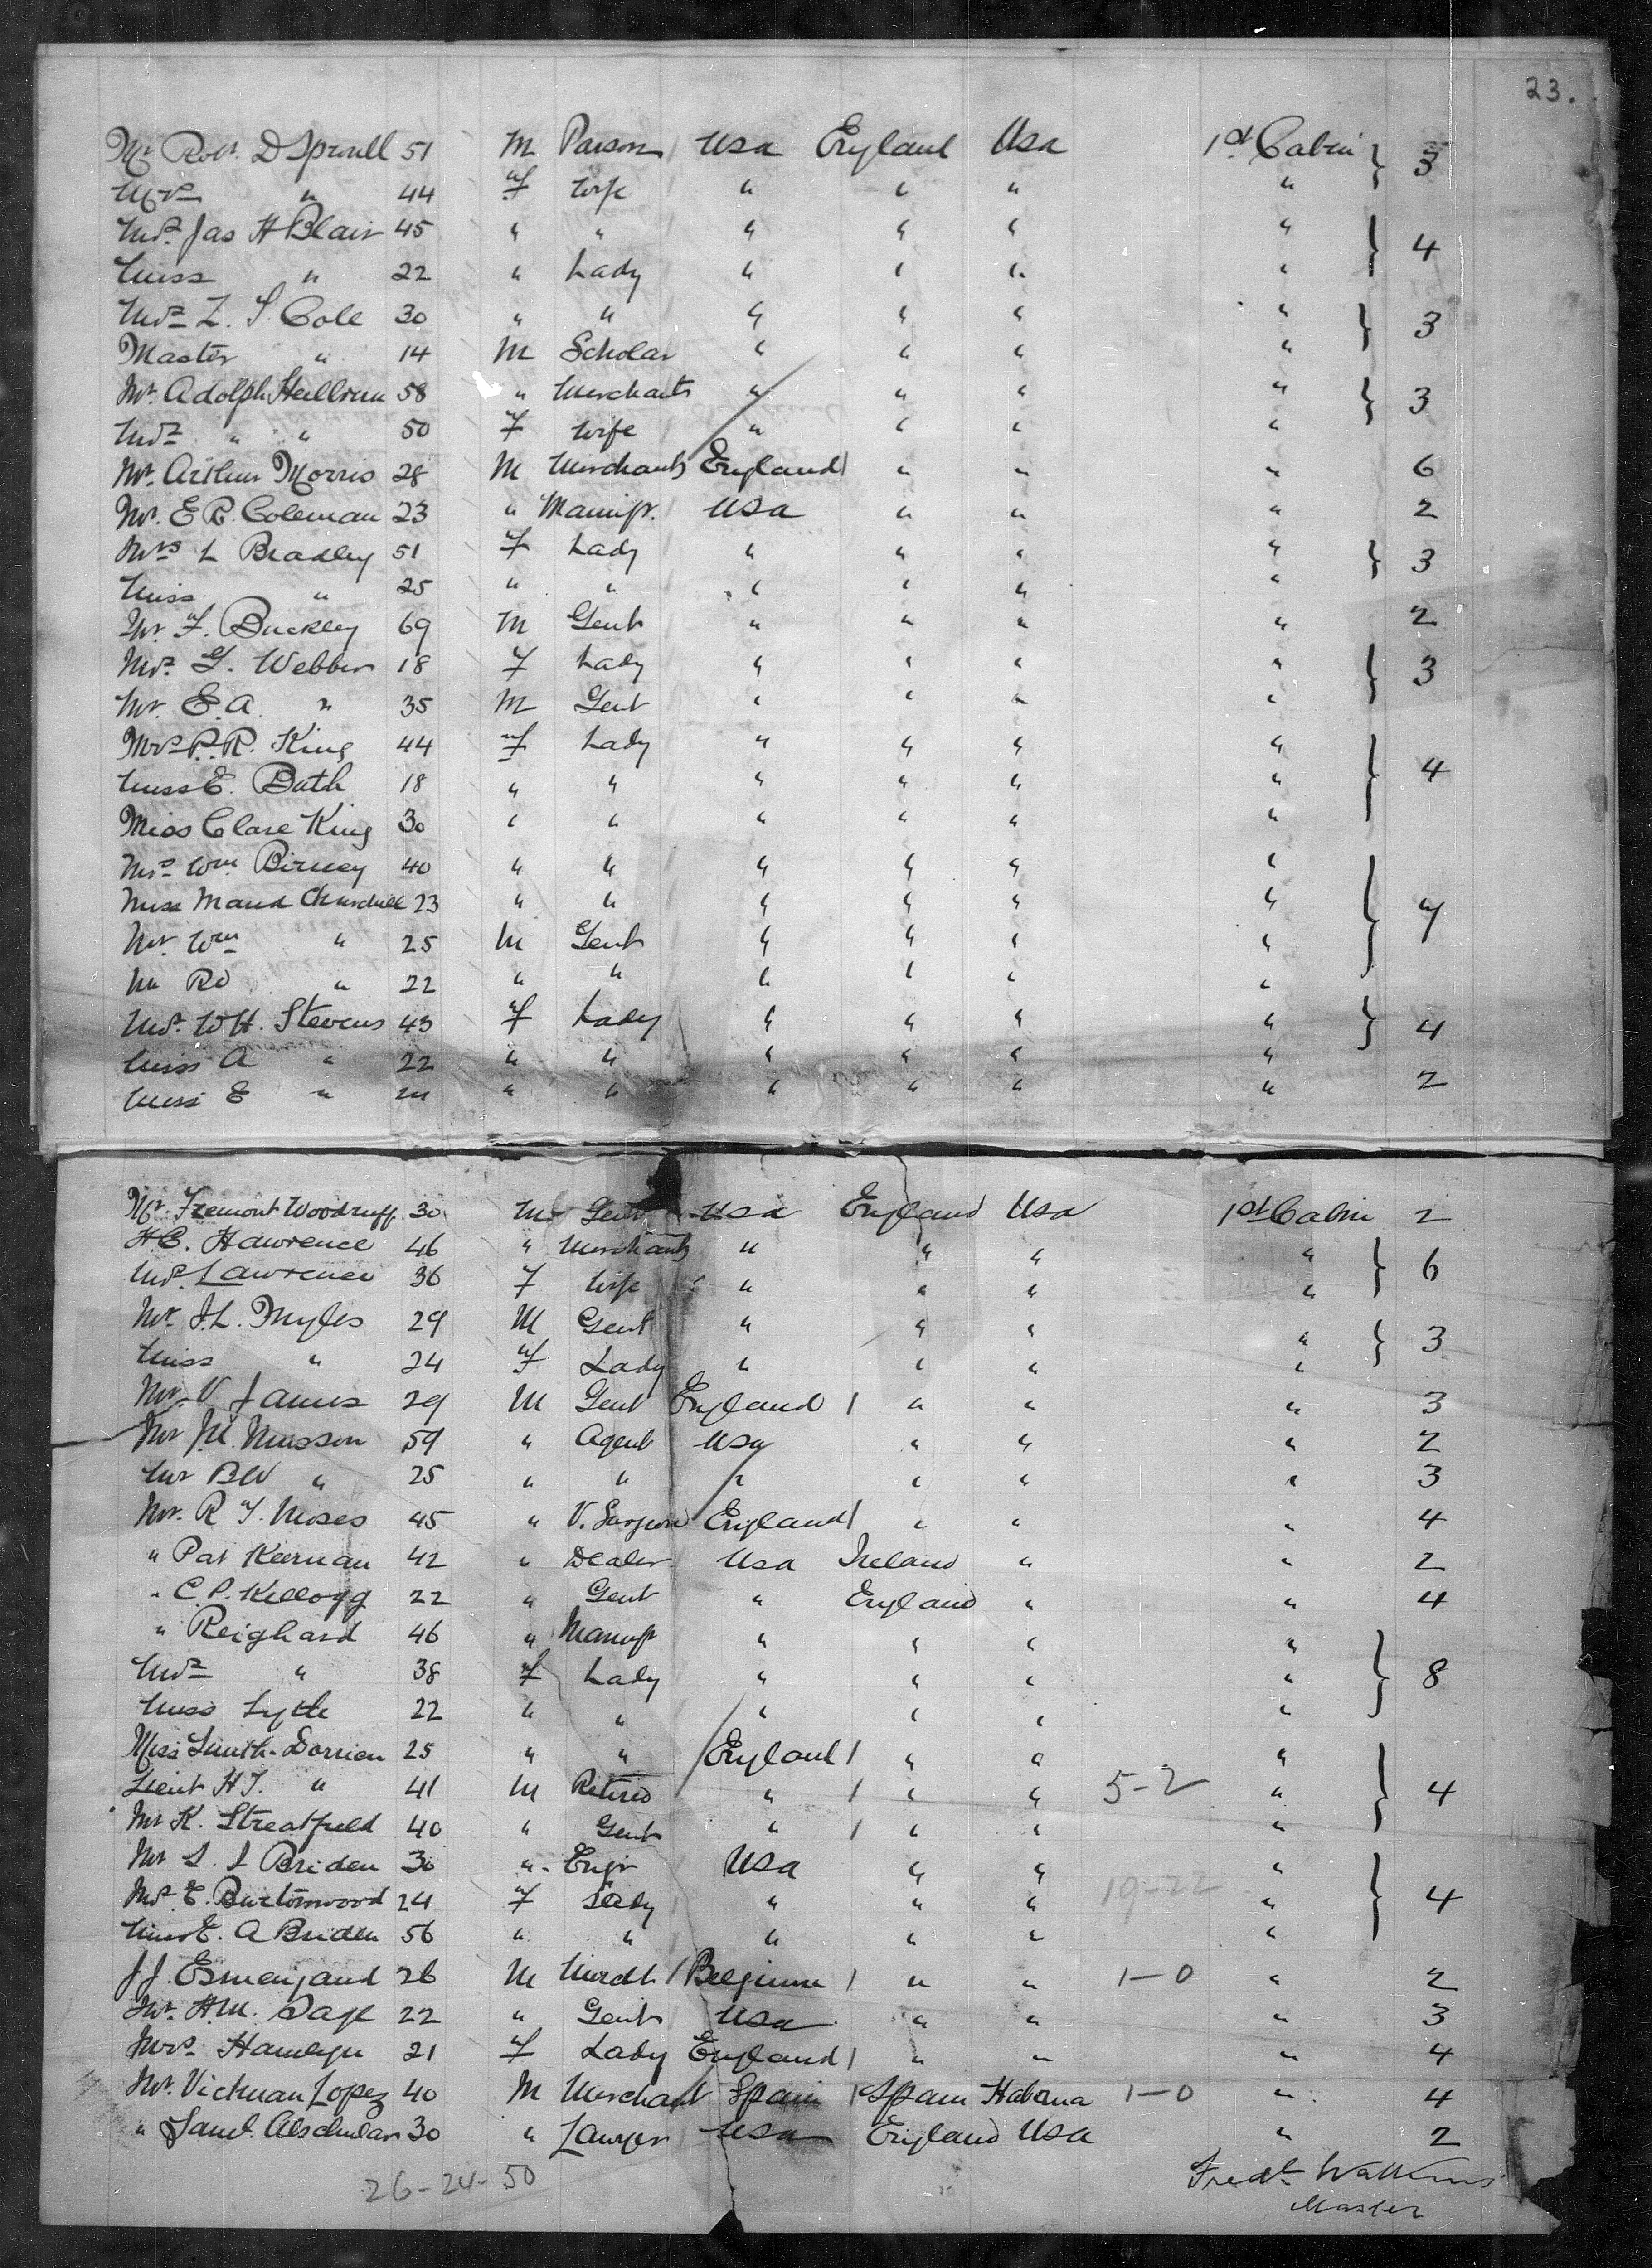 23.
Mr Robt. D Sproull 51 M Parson USA England USA 1st Cabin } 3
Mrs " 44 F Wife " " " " 
Mrs. Jas H Blair 45 " " " " " " } 4
Miss " 22 " Lady " " " "
Mrs Z. S. Cole 30 " " " " " " } 3
Master " 14 M Scholar " " " "
Mr. Adolph Heilbrun 58 " Merchant " " " " } 3
Mrs " " 50 F Wife " " " "
Mr. Arthur Morris 28 M Merchant England " " " 6
Mr. E R. Coleman 23 " Manufr. USA " " " 2
Mrs L Bradley 51 F Lady " " " " } 3
Miss " 25 " " " " " "
Mr. F. Buckley 69 M Gent " " " " 2
Mrs. G. Webber 18 F Lady " " " " } 3
Mr. E. A. " 35 M Gent " " " "
Mrs P. R. King 44 F Lady " " " " } 4
Miss E. Bath 18 " " " " " "
Miss Clare King 30 " " " " " "
Mrs Wm Birney 40 " " " " " " } 7
Miss Maud Churchill 23 " " " " " "
Mr. Wm " 25 M Gent " " " "
Mr Rd " 22 " " " " " "
Mrs. W H. Stevens 43 F Lady " " " " } 4
Miss A " 22 " " " " " "
Miss E " " " " " " " 2
Mr. Fremont Woodruff 30 M Gent USA England USA 1st Cabin 2
H C. Lawrence 46 " Merchant " " " " } 6
Mrs. Lawrence 36 F Wife " " " "
Mr. J. L. Myles 29 M Gent " " " " } 3
Miss " 24 F Lady " " " "
Mr. V James 29 M Gent England " " " 3
Mr J. M. Musson 59 " Agent USA " " " 2
Mr B W " 25 " " " " " " 3
Mr. R T. Moses 45 " V. Surgeon England " " " 4
" Pat Keernan 42 " Dealer USA Ireland " " 2
" C. P. Kellogg 22 " Gent " England " " 4
" Reighard 46 " Manufr " " " " } 8
Mrs " 38 F Lady " " " "
Miss Lytle 22 " " " " " "
Miss Smith-Dorrien 25 " " England " " " } 4
Lieut H T. " 41 M Retired " " " 5-2 "
Mr K. Streatfield 40 " Gent " " " "
Mr L. L Briden 30 " Engr USA " " " } 4
Mrs E. Burtonwood 24 F Lady " " " 19-22 "
Miss E. A Briden 56 " " " " " "
J J. Esmenjaud 26 M Mercht Belgium " " 1-0 " 2
Mr. H M. Sage 22 " Gent USA " " " 3
Mrs. Hamlyn 21 F Lady England " " " 4
Mr. Lopez 40 M Merchant Spain Spain Habana 1-0 " 4
" Saml. Alschular 30 " Lawyer USA England USA " 2
26-24-50
Fredk Watkins
Master